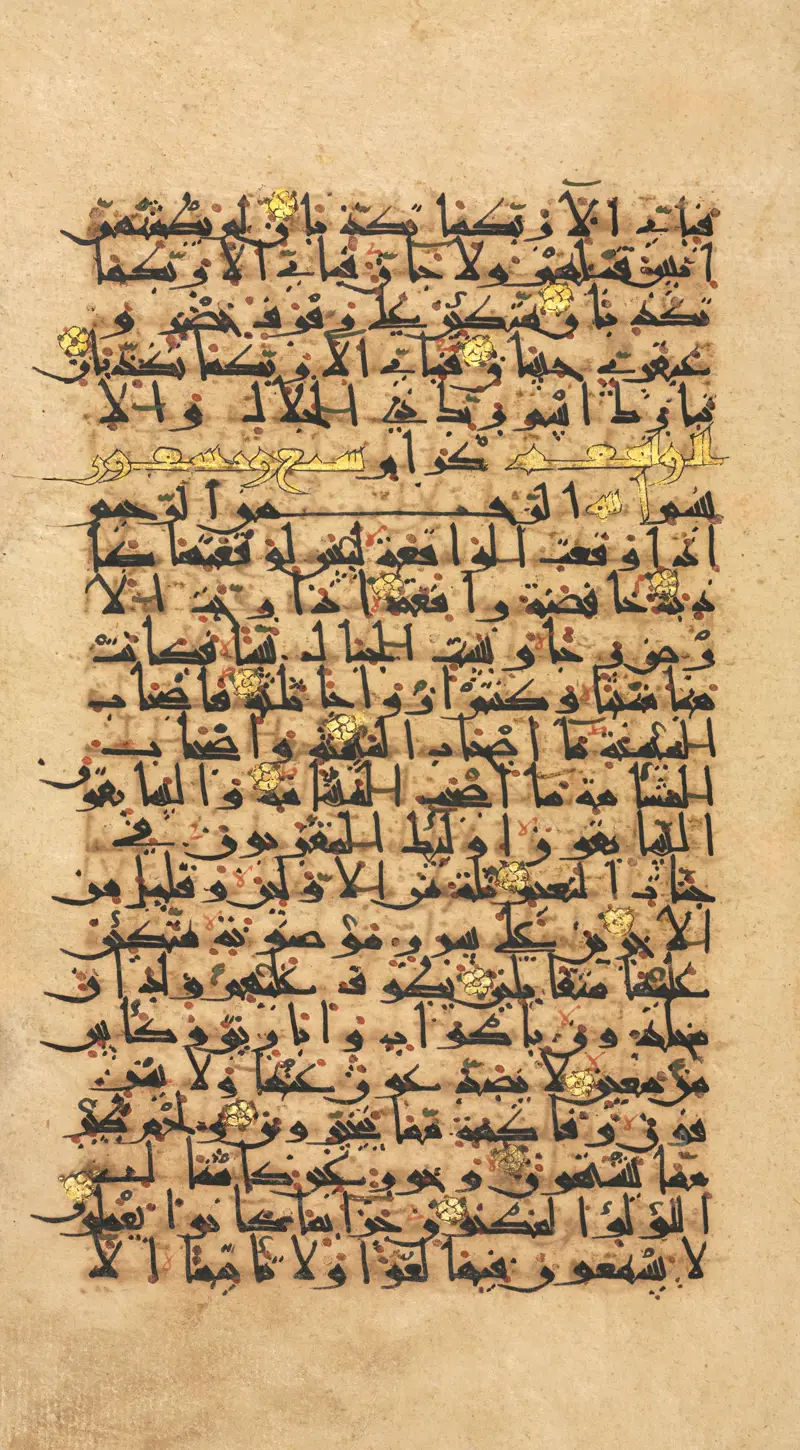 فباي الا ربكما تكذبان لم يطمثهن
انس قبلهم ولا جان فباي الا ربكما
تكذبان متكئين على رفرف خضر و
عبقري حسان فباي الا ربكما تكذبان
تبارك اسم ربك ذي الجلال والا
الواقعة كرام سبع وتسعون
بسم الله الرحمن الرحيم
اذا وقعت الواقعة ليس لوقعتها كا
ذبة خافضة رافعة اذا رجت الا
رض رجا وبست الجبال بسا فكانت
هبا منبثا وكنتم ازواجا ثلثة فاصحاب
الميمنة ما اصحاب الميمنة واصحاب
المشامة ما اصحب المشامة والسابقون
السابقون اولئك المقربون في
جنات النعيم ثلة من الاولين وقليل من
الاخرين على سرر موضونة متكئين
عليها متقابلين يطوف عليهم ولدان
مخلدون باكواب واباريق وكاس
من معين لا يصدعون عنها ولا ينز
فون وفاكهة مما يتخيرون ولحم طير
مما يشتهون وحور عين كامثال
اللؤلؤا المكنون جزا بما كانوا يعملون
لا يسمعون فيها لغوا ولا تاثيما الا